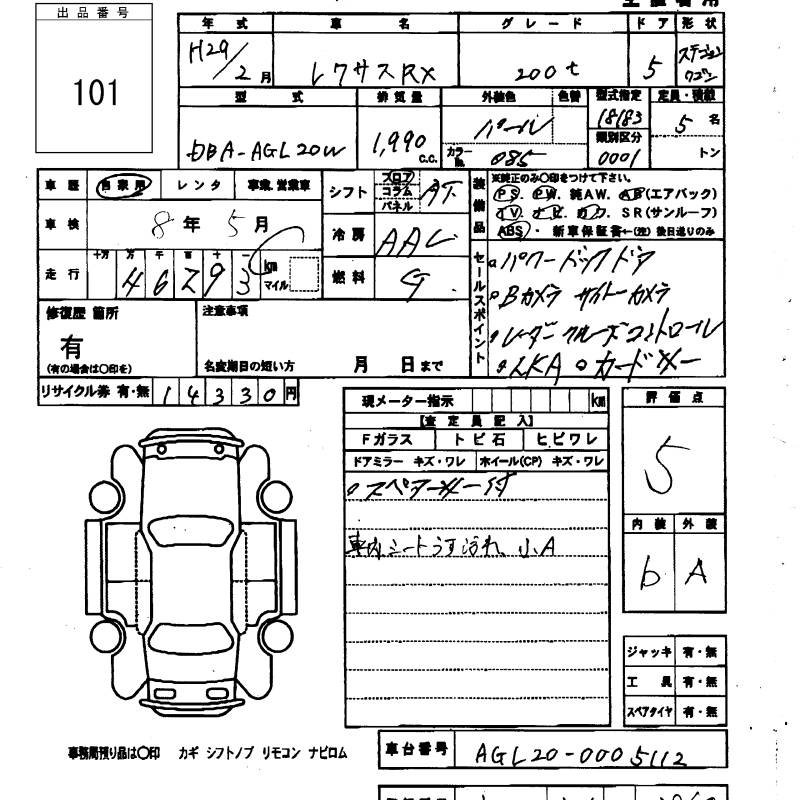 出品番号
101
年式 車名 グレード ドア 形状
H29/2月 レクサスRX 200t 5 ステーションワゴン
型式 排気量 外装色 色替 型式指定 定員・積載
DBA-AGL20W 1,990 c.c. パール 18183 5名
カラーNo. 085 類別区分 0001 トン
車歴 自家用 レンタ 事業、営業車
車検 8年5月
走行 十万 万 千 百 十 一
46293 km マイル
シフト フロア コラム パネル AT
冷房 AAC
燃料 G
装備品
※純正のみ〇印をつけて下さい。
PS. PW. 純AW. AB(エアバック)
TV. ナビ. カワ. SR(サンルーフ)
ABS・ 新車保証書←(注) 後日送りのみ
セールスポイント
パワーバックドア
Bカメラ サイドカメラ
レーダークルーズコントロール
LKA カードキー
修復歴 箇所
有
(有の場合は〇印を)
注意事項
名変期日の短い方 月 日まで
リサイクル券 有・無 14330円
現メーター指示 km
【査定員記入】
Fガラス トビ石 ヒビワレ
ドアミラー キズ・ワレ ホイール(CP) キズ・ワレ
スペアキー付
車内シートうす汚れ、小A
評価点
5
内装 外装
b A
ジャッキ 有・無
工具 有・無
スペアタイヤ 有・無
事務局預り品は〇印 カギ シフトノブ リモコン ナビロム
車台番号 AGL20-0005112